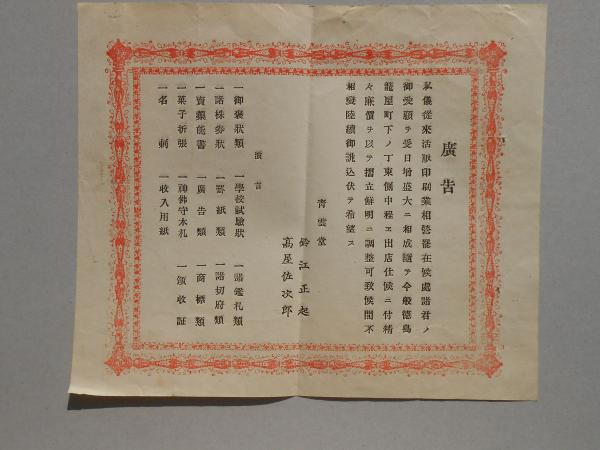 廣告
私儀從來活版印刷業相營罷在候處諸君ノ
御愛顧ヲ受日增盛大ニ相成謹テ今般德島
籠屋町下ノ丁東側中程ヱ出店仕候ニ付精
々廉價ヲ以テ摺立鮮明ニ調整可致候間不
相變陸續御誂込伏テ希望ス
靑雲堂
鈴江正起
高屋佐次郎
廣言
一御褒狀類 一學校試驗狀 一諸鑑札類
一諸株券狀 一罫紙類 一諸切府類
一賣藥能書 一廣告類 一商標類
一菓子折張 一神佛守木札 一領收証
一名刺 一收入用紙